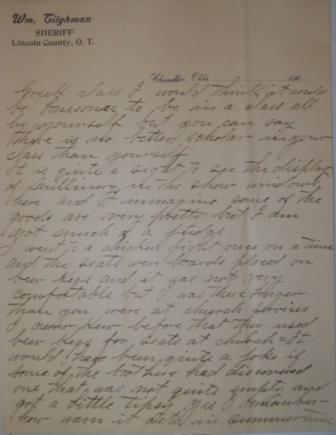 Wm. Tilghman
SHERIFF
Lincoln County, O. T.
Chandler, Okla. 190
Greek class I would think it would
be lonesome to be in a class all
by yourself but you can say
there is no better scholar in your
class than yourself
It is quite a sight to see the display
of millinery in the show windows
here and I immagine some of the
goods are very pretty but I am
not much of a judge
I went to a chicken fight once on a time
and the seats were boards placed on
beer kegs and it was not very
comfortable but I was there longer
than you were at church services
I never knew before that they used
beer kegs for seats at church It
would have been quite a joke if
some of the brothers had discovered
one that was not quite empty and
got a little tipsy yes I remember
how warm it gets in summer time